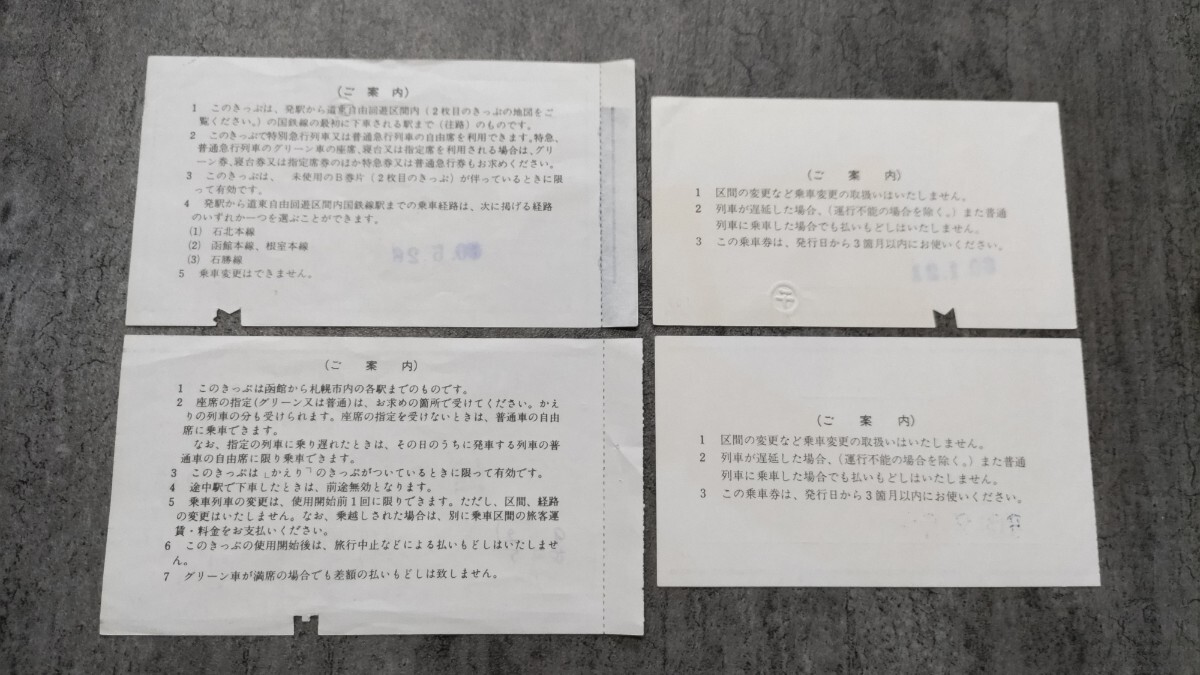 (ご案内)
1 このきっぷは、発駅から道東自由回遊区間内(2枚目のきっぷの地図をご
覧ください。)の国鉄線の最初に下車される駅まで(往路)のものです。
2 このきっぷで特別急行列車又は普通急行列車の自由席を利用できます。特急、
普通急行列車のグリーン車の座席、寝台又は指定席を利用される場合は、グリ
ーン券、寝台券又は指定席券のほか特急券又は普通急行券もお求めください。
3 このきっぷは、 未使用のB券片(2枚目のきっぷ)が伴っているときに限
って有効です。
4 発駅から道東自由回遊区間内国鉄線駅までの乗車経路は、次に掲げる経路
のいずれか一つを選ぶことができます。
(1) 石北本線
(2) 函館本線、根室本線
(3) 石勝線
5 乗車変更はできません。
(ご案内)
1 区間の変更など乗車変更の取扱いはいたしません。
2 列車が遅延した場合、(運行不能の場合を除く。)また普通
列車に乗車した場合でも払いもどしはいたしません。
3 この乗車券は、発行日から3箇月以内にお使いください。
(ご案内)
1 このきっぷは函館から札幌市内の各駅までのものです。
2 座席の指定(グリーン又は普通)は、お求めの箇所で受けてください。かえ
りの列車の分も受けられます。座席の指定を受けないときは、普通車の自由
席に乗車できます。
なお、指定の列車に乗り遅れたときは、その日のうちに発車する列車の普
通車の自由席に限り乗車できます。
3 このきっぷは「かえり」のきっぷがついているときに限って有効です。
4 途中駅で下車したときは、前途無効となります。
5 乗車列車の変更は、使用開始前1回に限りできます。ただし、区間、経路
の変更はいたしません。なお、乗越しされた場合は、別に乗車区間の旅客運
賃・料金をお支払いください。
6 このきっぷの使用開始後は、旅行中止などによる払いもどしはいたしませ
ん。
7 グリーン車が満席の場合でも差額の払いもどしは致しません。
(ご案内)
1 区間の変更など乗車変更の取扱いはいたしません。
2 列車が遅延した場合、(運行不能の場合を除く。)また普通
列車に乗車した場合でも払いもどしはいたしません。
3 この乗車券は、発行日から3箇月以内にお使いください。